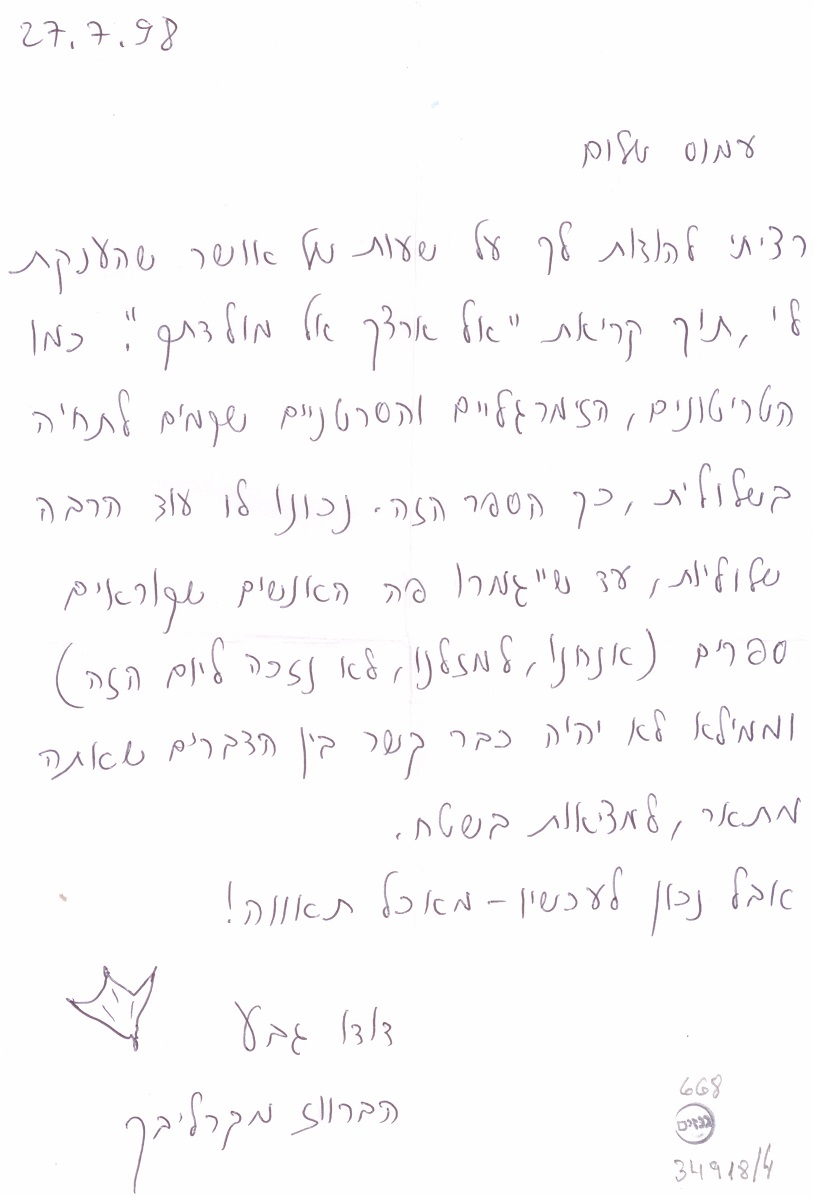 27.7.98
עמוס שלום
רציתי להודות לך על שעות של אושר שהענקת
לי, תוך קריאת "אל ארצך אל מולדתך". כמו
הטריטונים, הזימרגליים והסרטניים שקמים לתחיה
בשלולית, כך הספר הזה. נכונו לו עוד הרבה
שלוליות, עד שייגמרו פה האנשים שקוראים
ספרים (אנחנו, למזלנו, לא נזכה ליום הזה)
וממילא לא יהיה כבר קשר בין הדברים שאתה
מתאר, למציאות בשטח.
אבל נכון לעכשיו - מאכל תאווה!
דודו גבע
הברווז מקרליבך
668
גנזים
34918/4